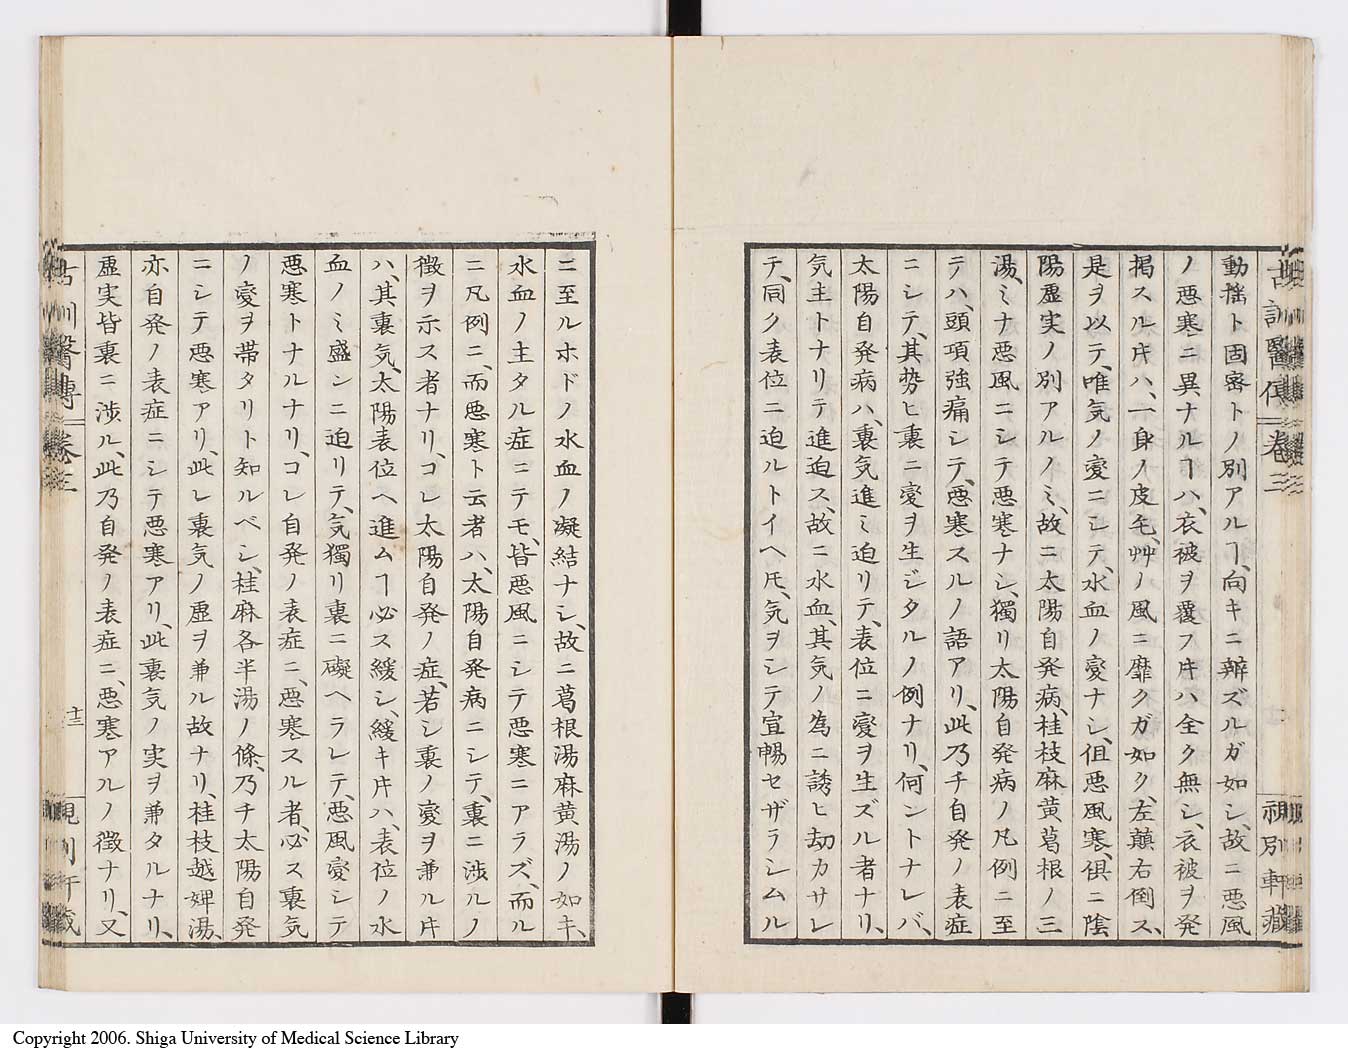 古訓醫傳 卷三
視別軒藏
動揺ト固密トノ別アルヿ、向キニ辨ズルガ如シ、故ニ悪風
ノ悪寒ニ異ナルヿハ、衣被ヲ覆フ𪜈ハ全ク無シ、衣被ヲ発
掲スル𪜈ハ、一身ノ皮毛、艸ノ風ニ靡クガ如ク、左顛右倒ス、
是ヲ以テ、唯気ノ変ニシテ、水血ノ変ナシ、但悪風寒、俱ニ陰
陽虚実ノ別アルノミ、故ニ太陽自発病、桂枝麻黄葛根ノ三
湯、ミナ悪風ニシテ悪寒ナシ、獨リ太陽自発病ノ凡例ニ至
テハ、頭項強痛シテ、悪寒スルノ語アリ、此乃チ自発ノ表症
ニシテ、其勢ヒ裏ニ変ヲ生ジタルノ例ナリ、何ントナレバ、
太陽自発病ハ、裏気進ミ迫リテ、表位ニ変ヲ生ズル者ナリ、
気主トナリテ進迫ス、故ニ水血、其気ノ為ニ誘ヒ劫カサレ
テ、同ク表位ニ迫ルトイヘ𪜈、気ヲシテ宣暢セザラシムル
ニ至ルホドノ水血ノ凝結ナシ、故ニ葛根湯麻黄湯ノ如キ、
水血ノ主タル症ニテモ、皆悪風ニシテ悪寒ニアラズ、而ル
ニ凡例ニ、而悪寒ト云者ハ、太陽自発病ニシテ、裏ニ渉ルノ
徴ヲ示ス者ナリ、コレ太陽自発ノ症、若シ裏ノ変ヲ兼ル𪜈
ハ、其裏気、太陽表位ヘ進ムヿ必ス緩シ、緩キ𪜈ハ、表位ノ水
血ノミ盛ンニ迫リテ、気獨リ裏ニ礙ヘラレテ、悪風変シテ
悪寒トナルナリ、コレ自発ノ表症ニ、悪寒スル者、必ス裏気
ノ変ヲ帯タリト知ルベシ、桂麻各半湯ノ條、乃チ太陽自発
ニシテ悪寒アリ、此レ裏気ノ虚ヲ兼ル故ナリ、桂枝越婢湯、
亦自発ノ表症ニシテ悪寒アリ、此裏気ノ実ヲ兼タルナリ、
虚実皆裏ニ渉ル、此乃自発ノ表症ニ、悪寒アルノ徴ナリ、又
古訓醫傳 卷三
十三